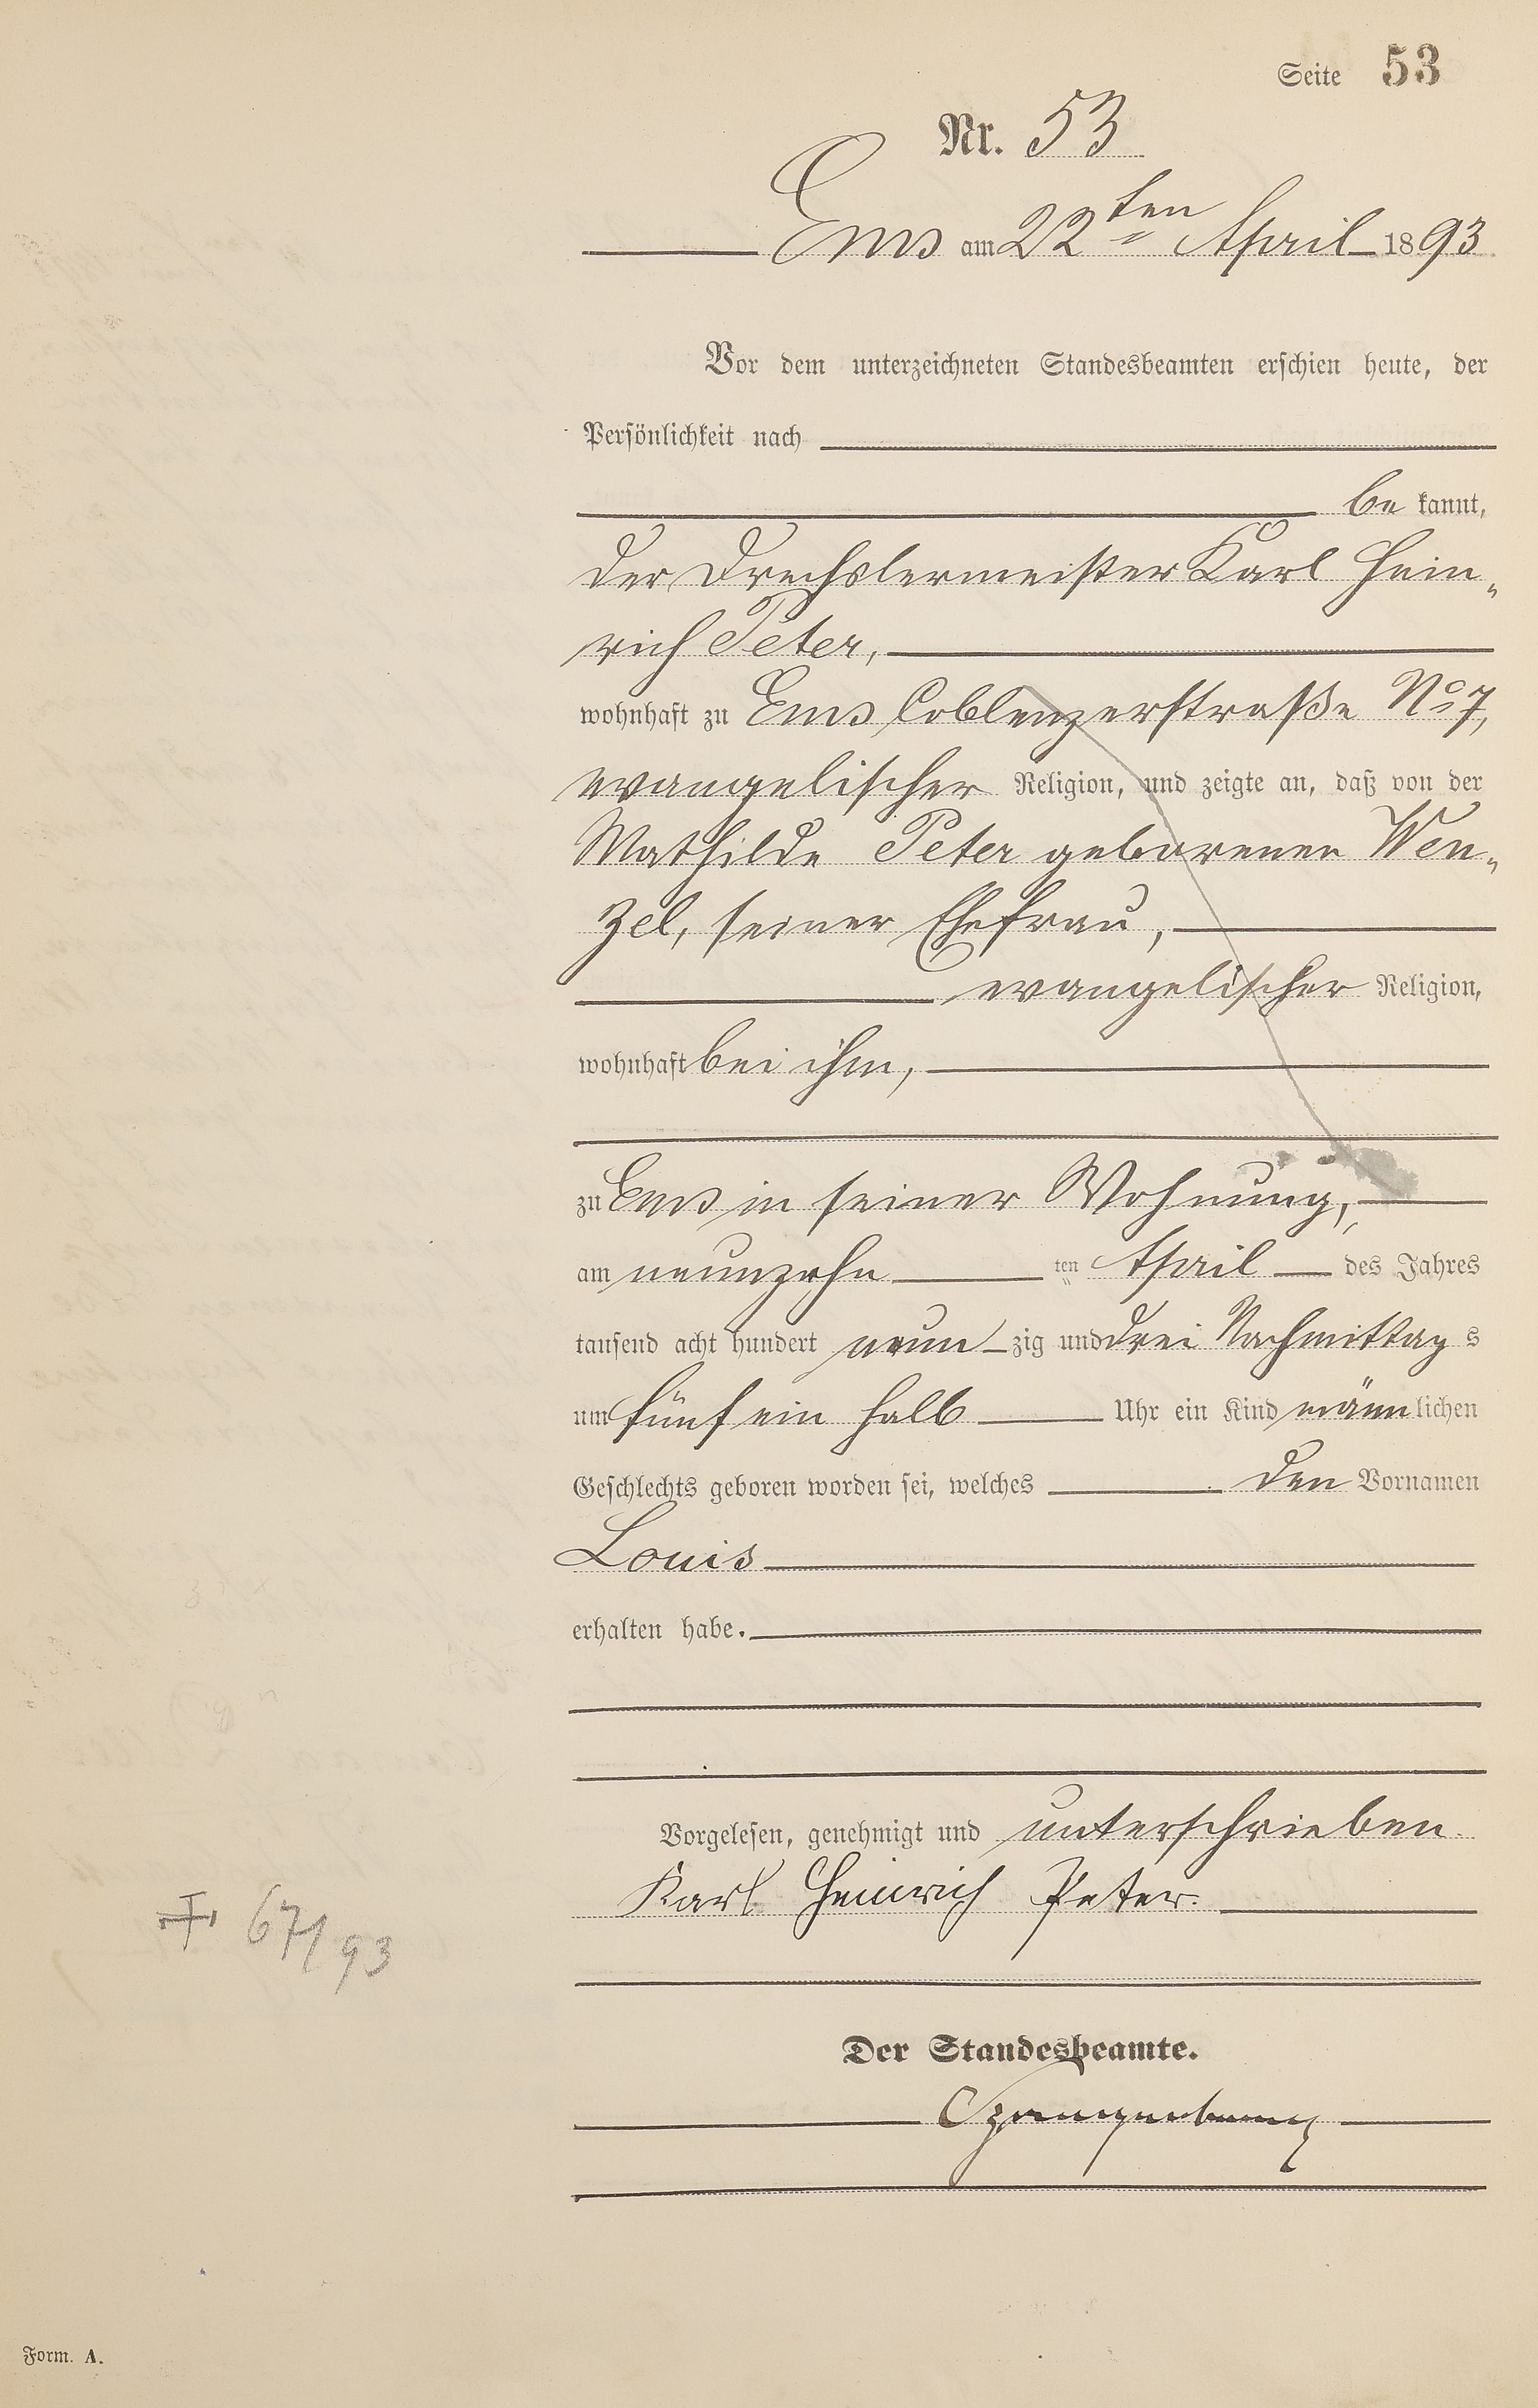 Seite 53
Nr. 53
Ems am 22ten April 1893
Vor dem unterzeichneten Standesbeamten erschien heute, der
Persönlichkeit nach
be kannt,
der Drechslermeister Karl Hein-
rich Peter,
wohnhaft zu Ems Coblenzerstraße No 7,
evangelischer Religion, und zeigte an, daß von der
Mathilde Peter geborenen Wen-
zel, seiner Ehefrau,
evangelischer Religion,
wohnhaft bei ihm,
zu Ems in seiner Wohnung,
am neunzehn ten April des Jahres
tausend acht hundert neun zig und drei Nachmittag s
um fünf ein halb Uhr ein Kind männ lichen
Geschlechts geboren worden sei, welches den Vornamen
Louis
erhalten habe.
Vorgelesen, genehmigt und unterschrieben.
Karl Heinrich Peter.
67/93
Der Standesbeamte.
Form. A.